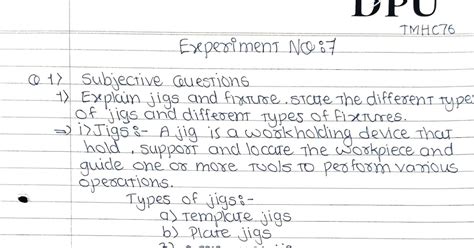 DPU
TMHC76
Experiment NO:7
Q 1) Subjective Questions
1) Explain jigs and fixture. state The different type
of jigs and different types of Fixtures.
⇒ i) Jigs:- A jig is a workholding device that
hold, support and locate the workpiece and
guide one or more tools to perform various
operations.
Types of jigs:-
a) Template jigs
b) Plate jigs